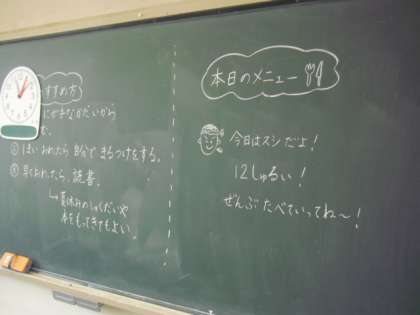 すすめ方
にが手なかだいから
む。
②はい おれたら 自分で まるつけをする。
③早くおわったら、読書。
↳ 夏休みのしゅくだいや
本をもってきてもよい。
本日のメニュー
今日はスシだよ!
12しゅるい!
ぜんぶ たべていってね〜!